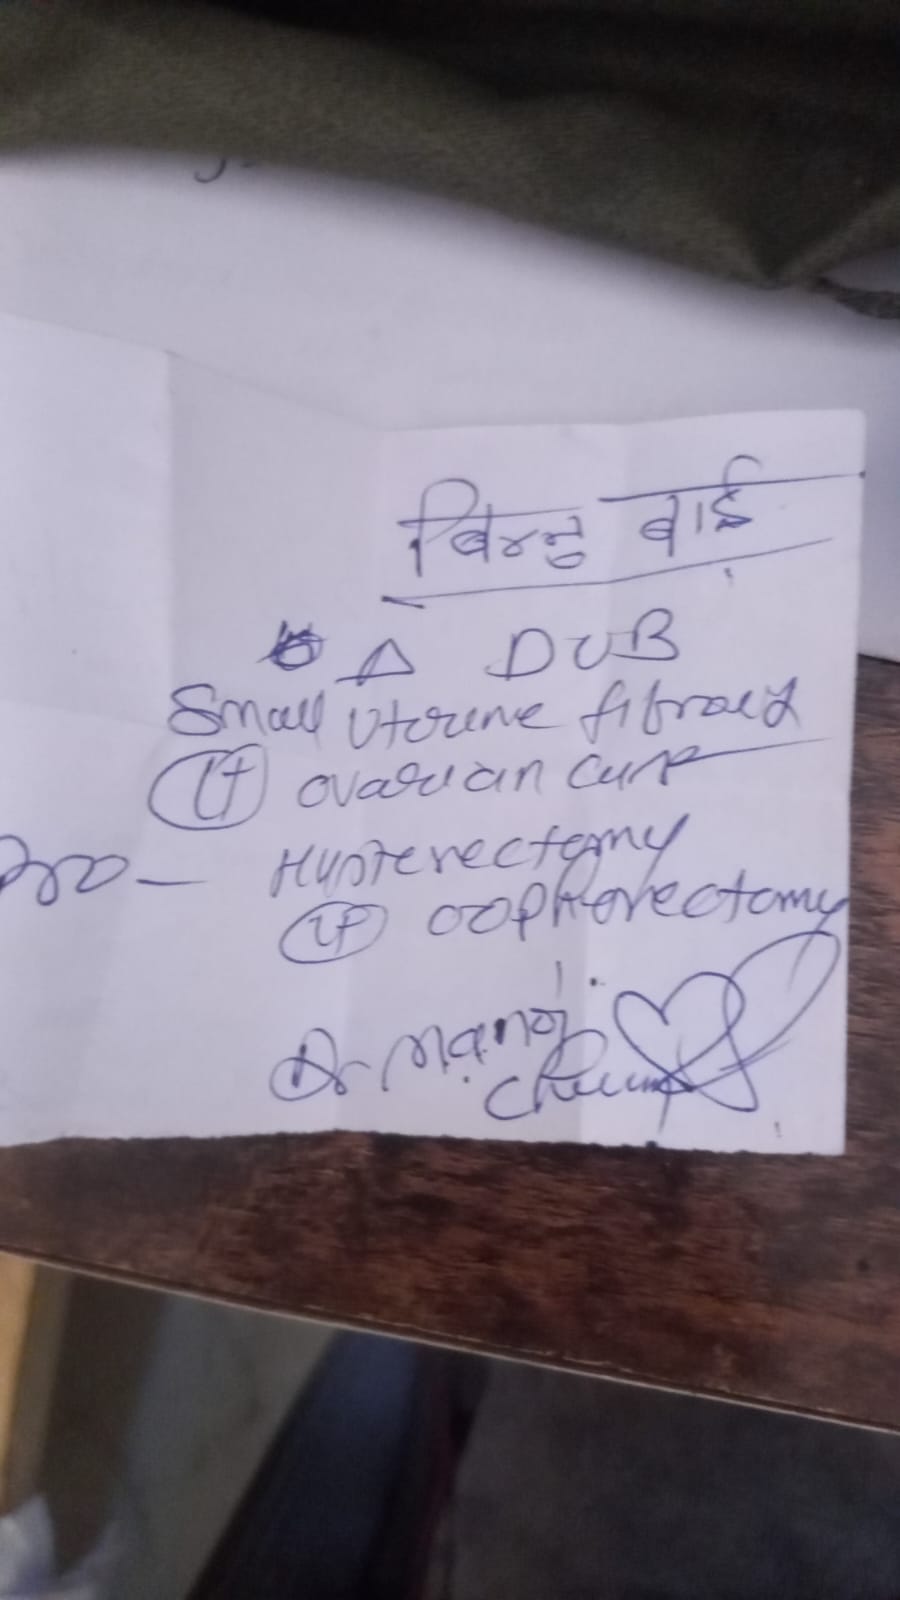 बिरनु बाई
Δ DUB
Small Uterine fibroid
Lt ovarian cyst
Pro - Hysterectomy
Lt oophorectomy
Dr Manoj